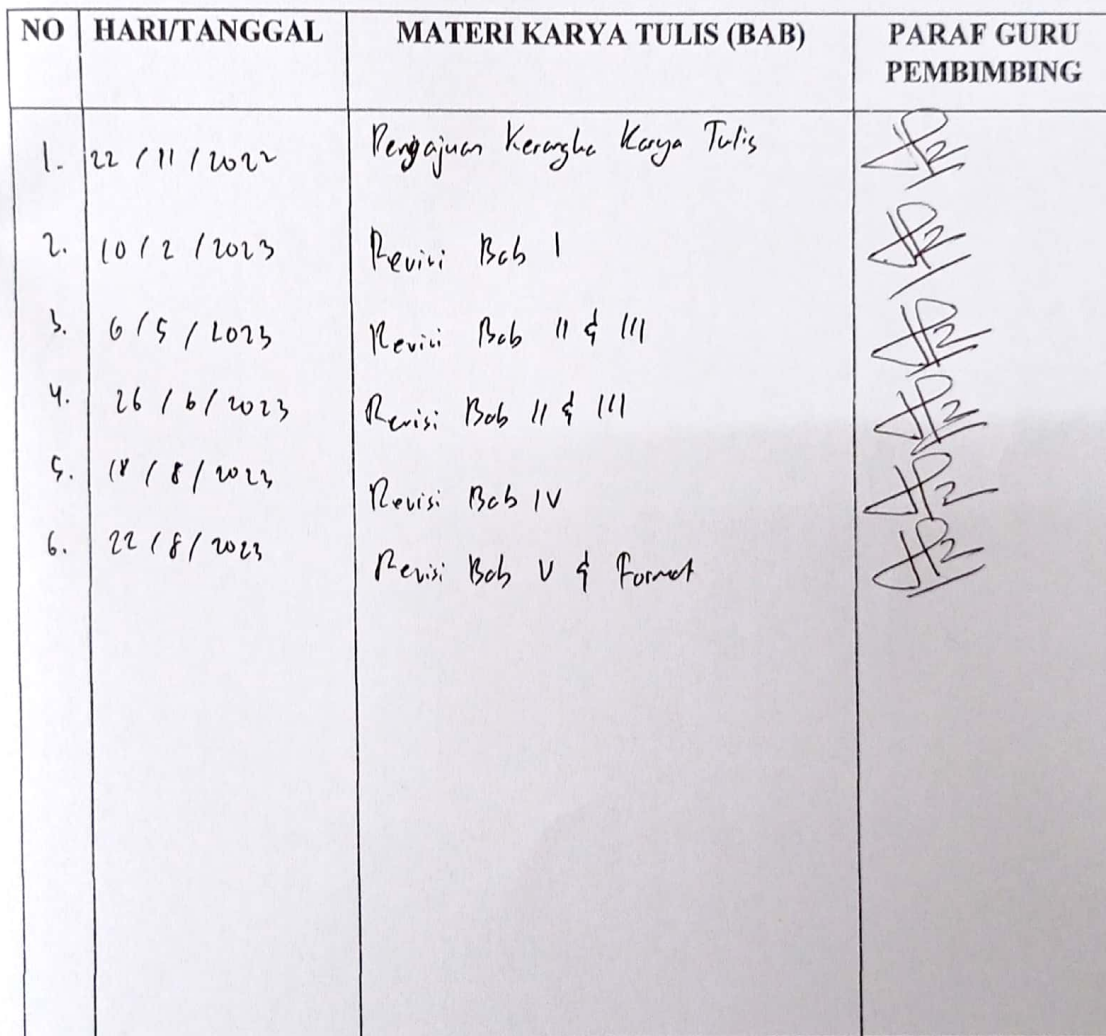 NO HARI/TANGGAL MATERI KARYA TULIS (BAB) PARAF GURU
PEMBIMBING
1. 22 / 11 / 2022 Pengajuan Kerangka Karya Tulis
2. 10 / 2 / 2023 Revisi Bab I
3. 6 / 5 / 2023 Revisi Bab II & III
4. 26 / 6 / 2023 Revisi Bab II & III
5. 18 / 8 / 2023 Revisi Bab IV
6. 22 / 8 / 2023 Revisi Bab V & Format